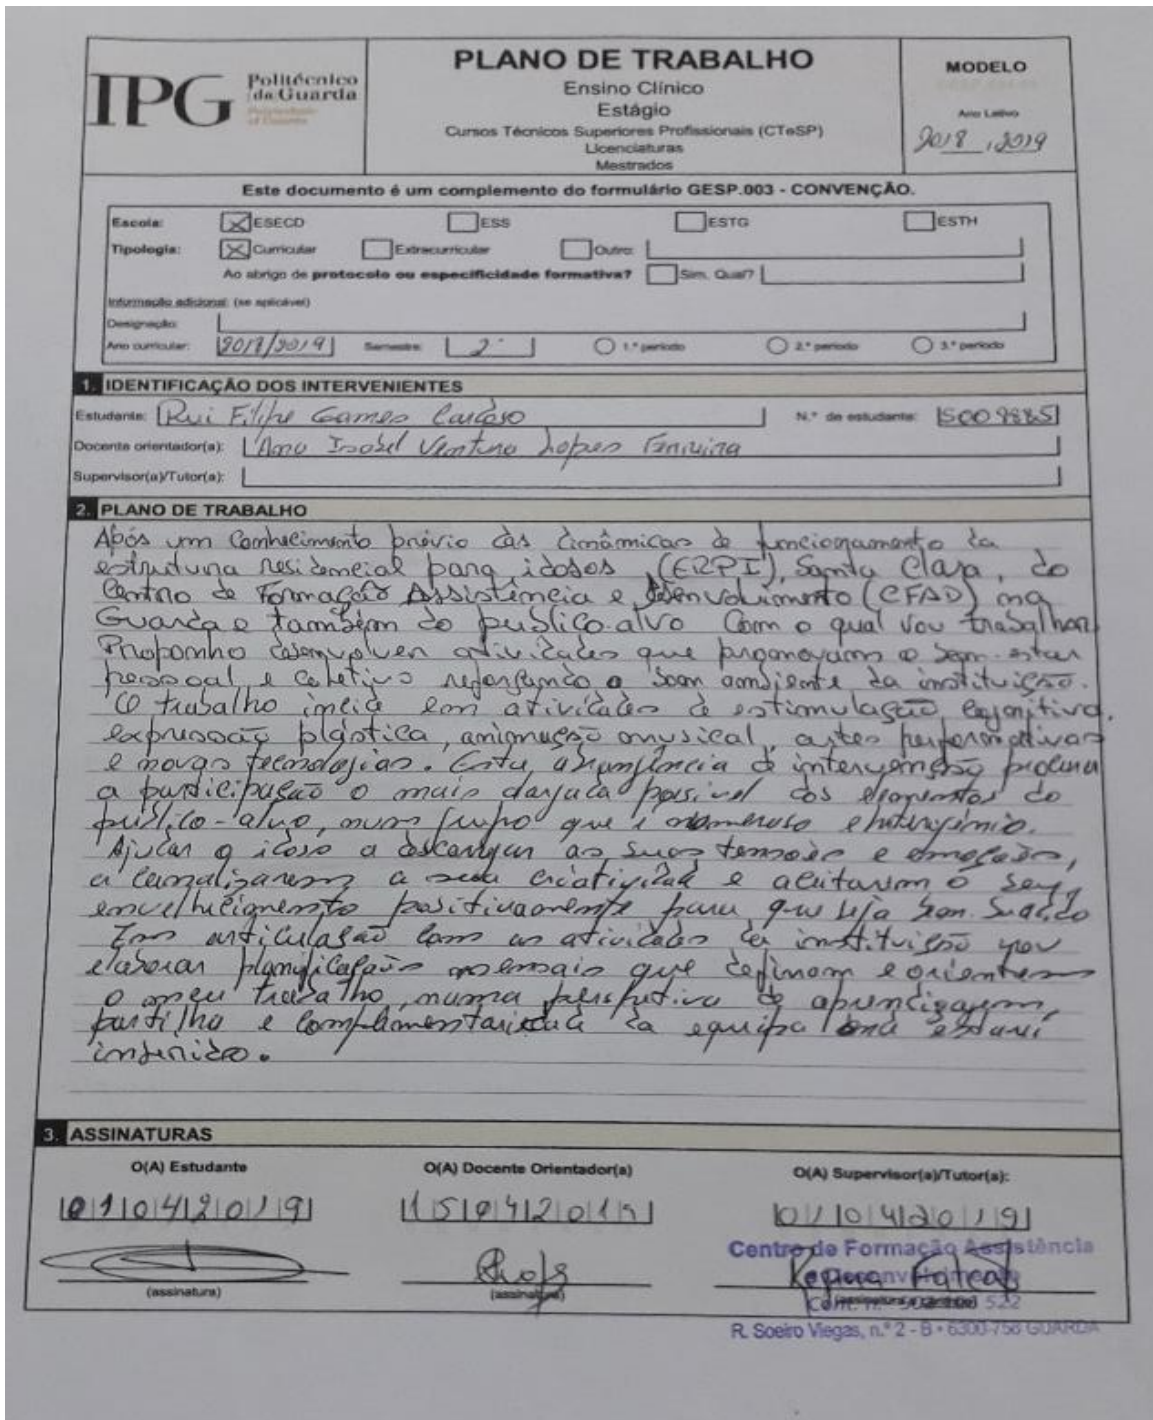 IPG Politécnico da Guarda
PLANO DE TRABALHO
Ensino Clínico
Estágio
Cursos Técnicos Superiores Profissionais (CTeSP)
Licenciaturas
Mestrados
MODELO
Ano Letivo
2018, 2019
Este documento é um complemento do formulário GESP.003 - CONVENÇÃO.
Escola: X ESECD ESS ESTG ESTH
Tipologia: X Curricular Extracurricular Outro:
Ao abrigo de protocolo ou especificidade formativa? Sim. Qual?
Informação adicional: (se aplicável)
Designação:
Ano curricular: 2018/2019 Semestre: 2º 1.º período 2.º período 3.º período
1. IDENTIFICAÇÃO DOS INTERVENIENTES
Estudante: Rui Filipe Gomes Cardoso N.º de estudante: 5009885
Docente orientador(a): Ana Isabel Ventura Lopes Ferreira
Supervisor(a)/Tutor(a):
2. PLANO DE TRABALHO
Após um conhecimento prévio das dinâmicas de funcionamento da
estrutura residencial para idosos (ERPI), Santa Clara, do
Centro de Formação Assistência e Desenvolvimento (CFAD) na
Guarda e também do público-alvo com o qual vou trabalhar
Proponho desenvolver atividades que promovam o bem-estar
pessoal e coletivo reforçando o bom ambiente da instituição.
O trabalho incide em atividades de estimulação cognitiva,
expressão plástica, animação musical, artes performativas
e novas tecnologias. Esta abrangência de intervenção procura
a participação o mais possível dos elementos do
público-alvo, num grupo que é numeroso e heterogénio.
Ajudar o idoso a descarregar as suas tensões e emoções,
a canalizarem a sua criatividade e aceitarem o seu
envelhecimento positivamente para que seja bem sucedido
Em articulação com as atividades da instituição vou
elaborar planificações mensais que definam e orientem
o meu trabalho, numa perspetiva de aprendizagem,
partilha e complementaridade da equipa onde estarei
inserido.
3. ASSINATURAS
O(A) Estudante O(A) Docente Orientador(a) O(A) Supervisor(a)/Tutor(a):
01042019 15042019 01042019
(assinatura) (assinatura)
Centro de Formação Assistência
e Desenvolvimento
R. Soeiro Viegas, n.º 2 - B • 6300-758 GUARDA